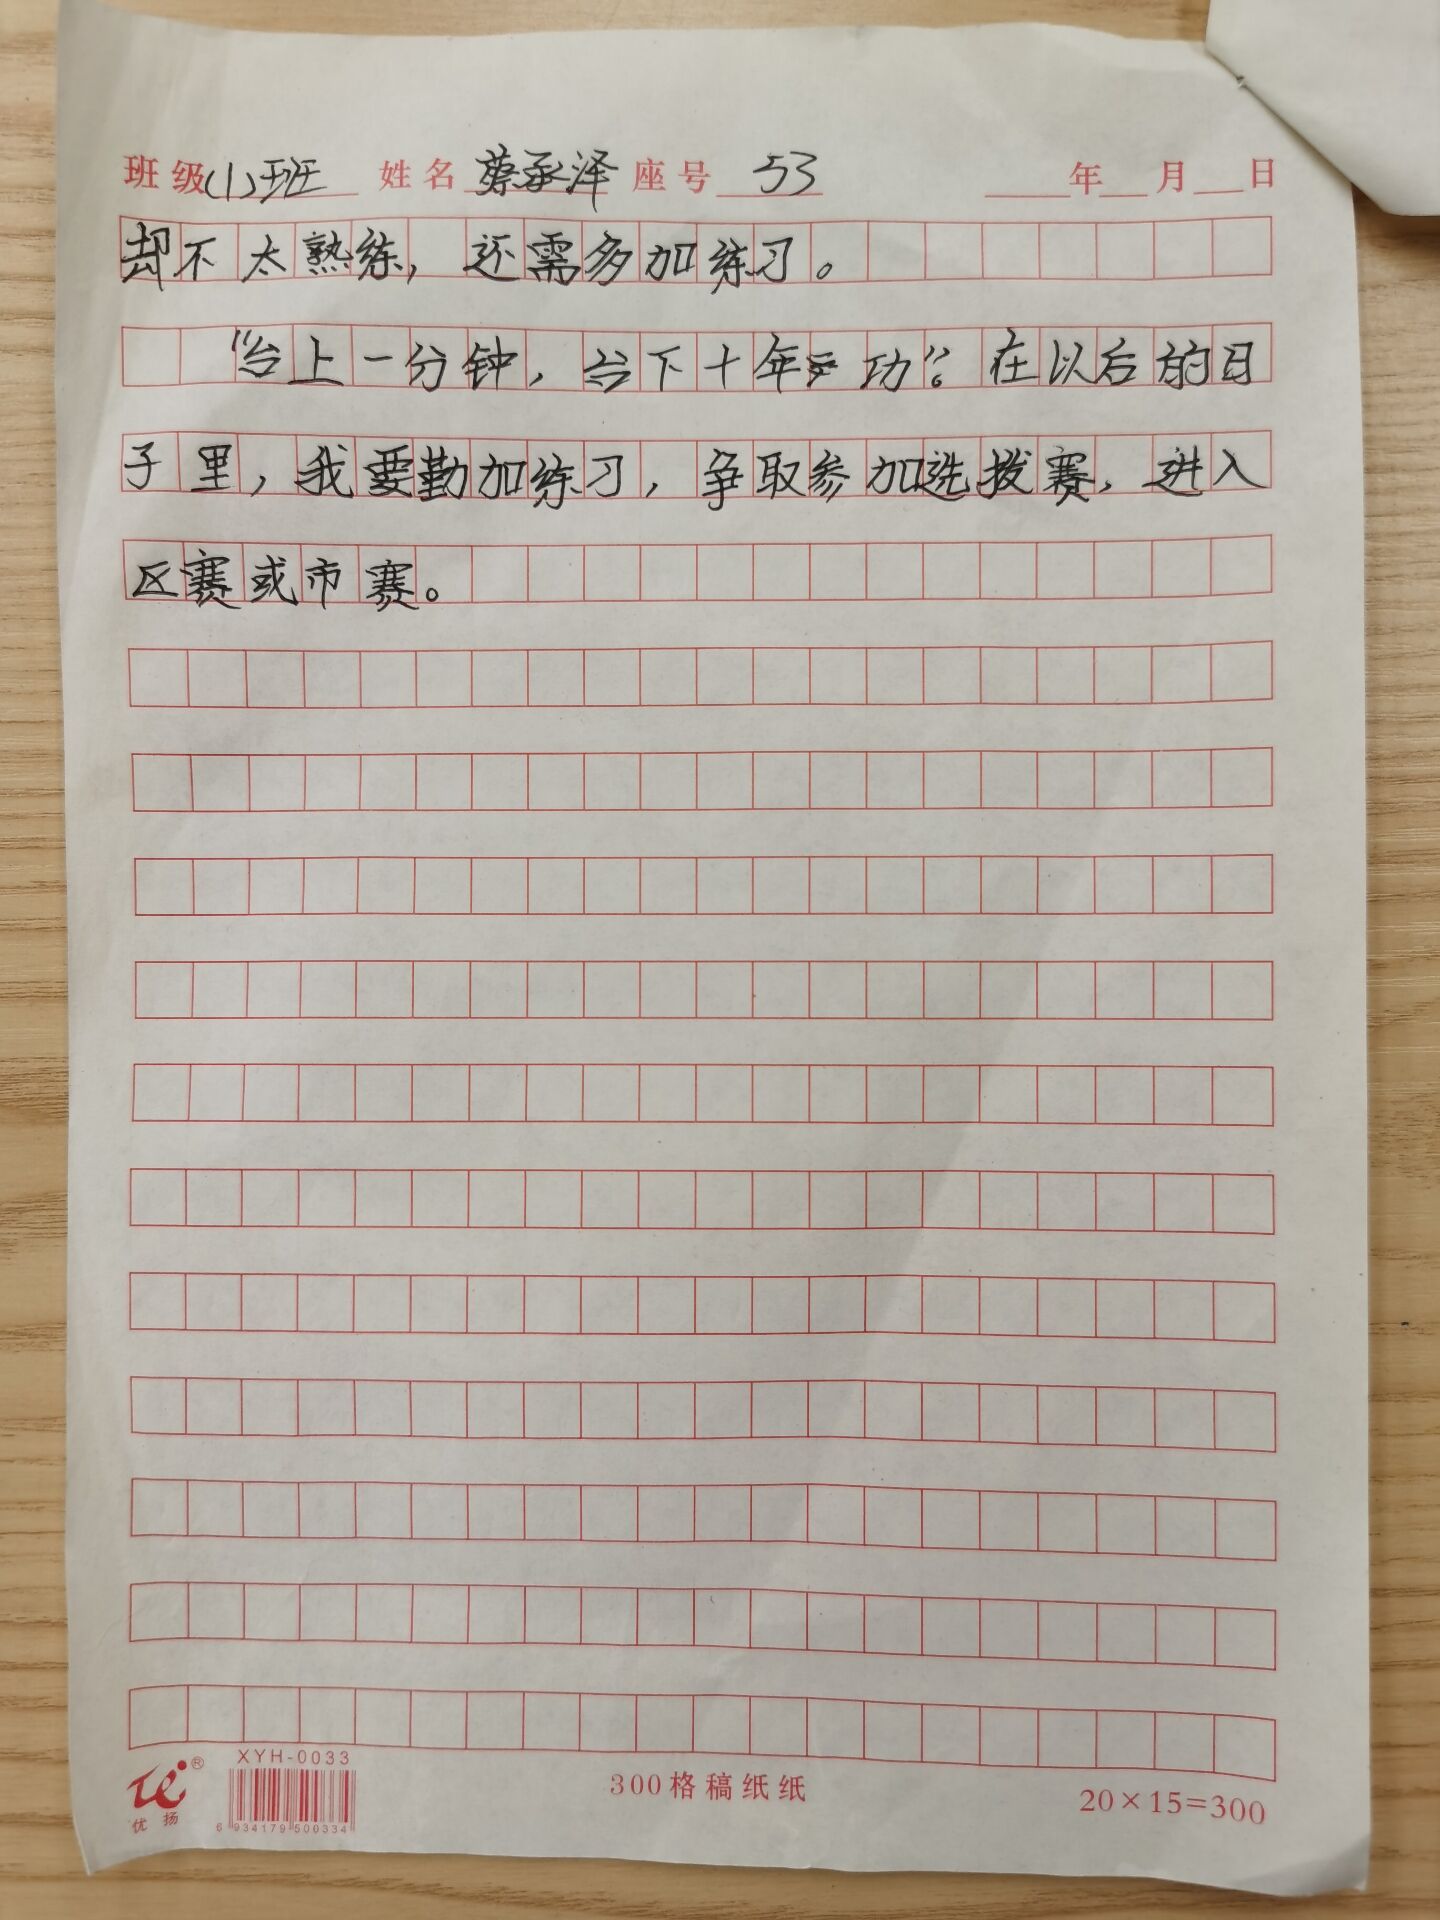 班级(1)班 姓名 蔡承泽 座号 53 年 月 日
却不太熟练，还需多加练习。
“台上一分钟，台下十年功”。在以后的日
子里，我要勤加练习，争取参加选拨赛，进入
区赛或市赛。
XYH-0033
优扬
6 934179 500334
300格稿纸纸
20×15=300